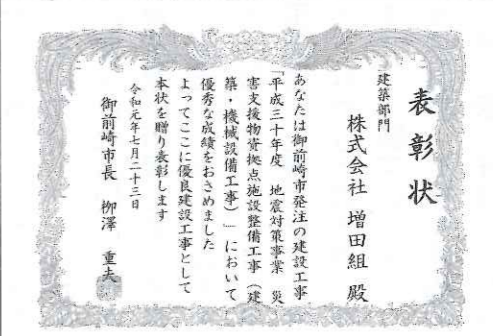 表彰状
建築部門
株式会社 増田組 殿
あなたは御前崎市発注の建設工事
「平成三十年度 地震対策事業 災
害支援物資拠点施設整備工事（建
築・機械設備工事）」において
優秀な成績をおさめました
よってここに優良建設工事として
本状を贈り表彰します
令和元年七月二十三日
御前崎市長 柳澤 重夫